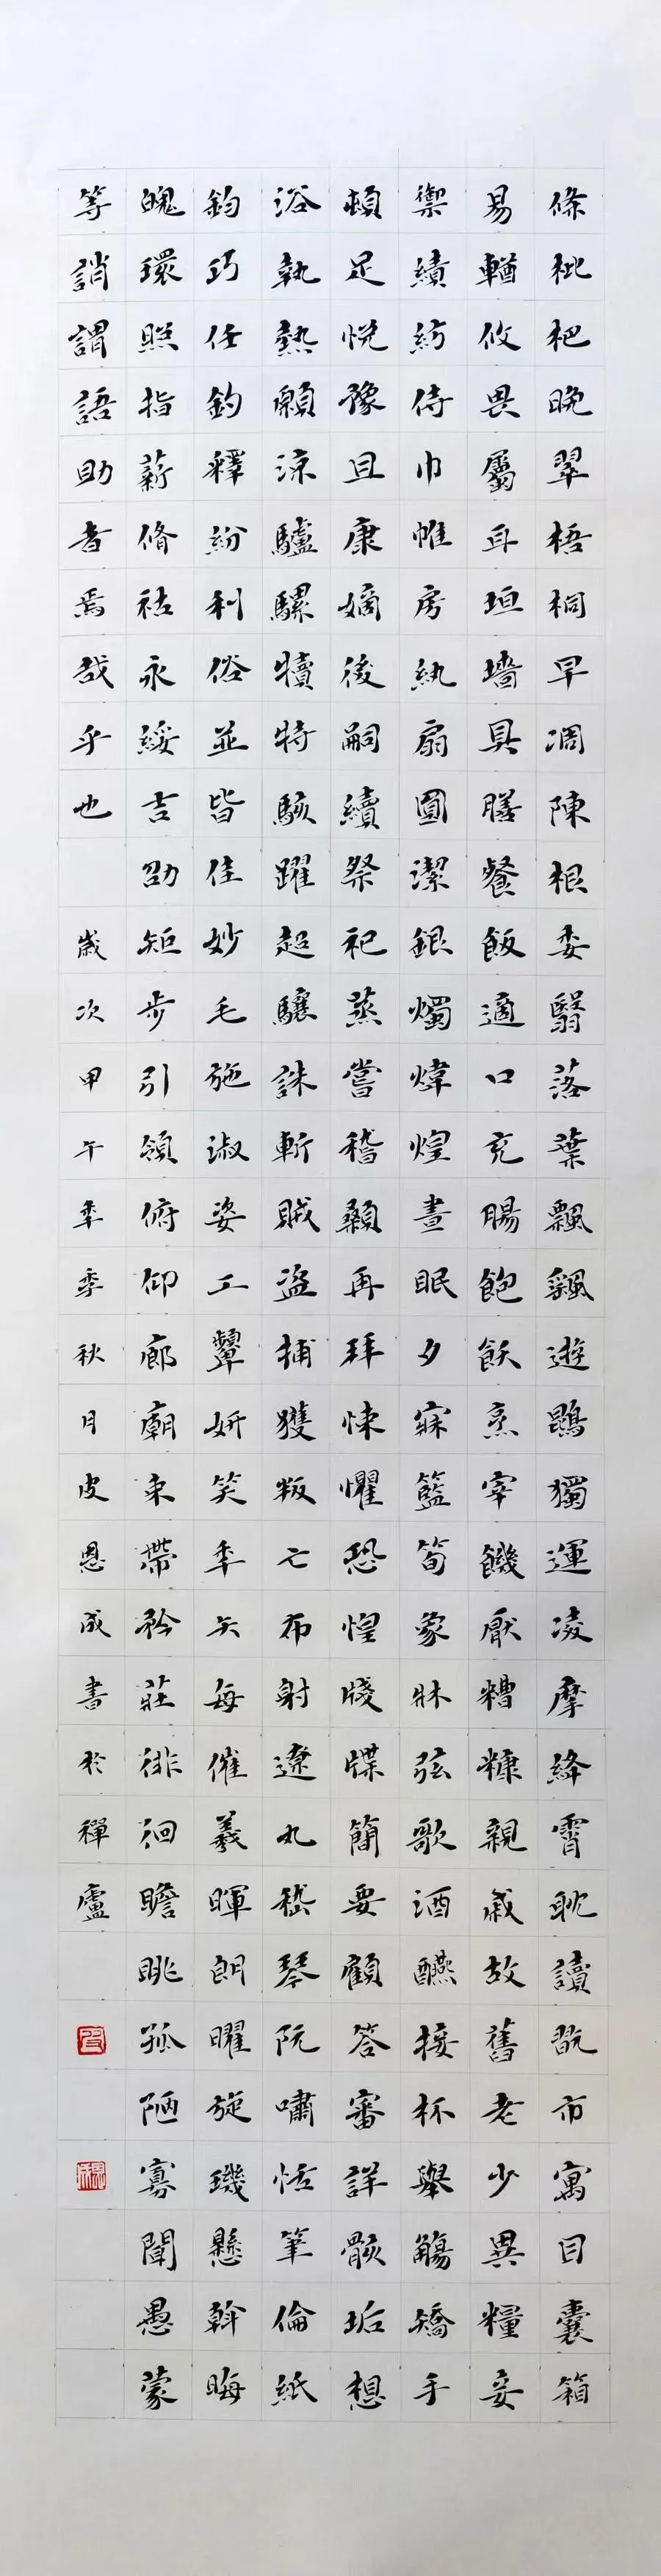 條枇杷晚翠梧桐早凋陳根委翳落葉飄颻遊鵾獨運凌摩絳霄耽讀翫市寓目囊箱
易輶攸畏屬耳垣墻具膳餐飯適口充腸飽飫烹宰饑厭糟糠親戚故舊老少異糧妾
禦績紡侍巾帷房紈扇圓潔銀燭煒煌晝眠夕寐籃筍象牀弦歌酒醼接杯舉觴矯手
頓足悅豫且康嫡後嗣續祭祀蒸嘗稽顙再拜悚懼恐惶牋牒簡要顧答審詳骸垢想
浴執熱願涼驢騾犢特駭躍超驤誅斬賊盜捕獲叛亡布射遼丸嵇琴阮嘯恬筆倫紙
鈞巧任釣釋紛利俗並皆佳妙毛施淑姿工顰妍笑年矢每催羲暉朗曜旋璣懸斡晦
魄環照指薪脩祜永綏吉劭矩步引領俯仰廊廟束帶矜莊徘徊瞻眺孤陋寡聞愚蒙
等誚謂語助者焉哉乎也 歲次甲午年季秋月皮恩成書於禪廬